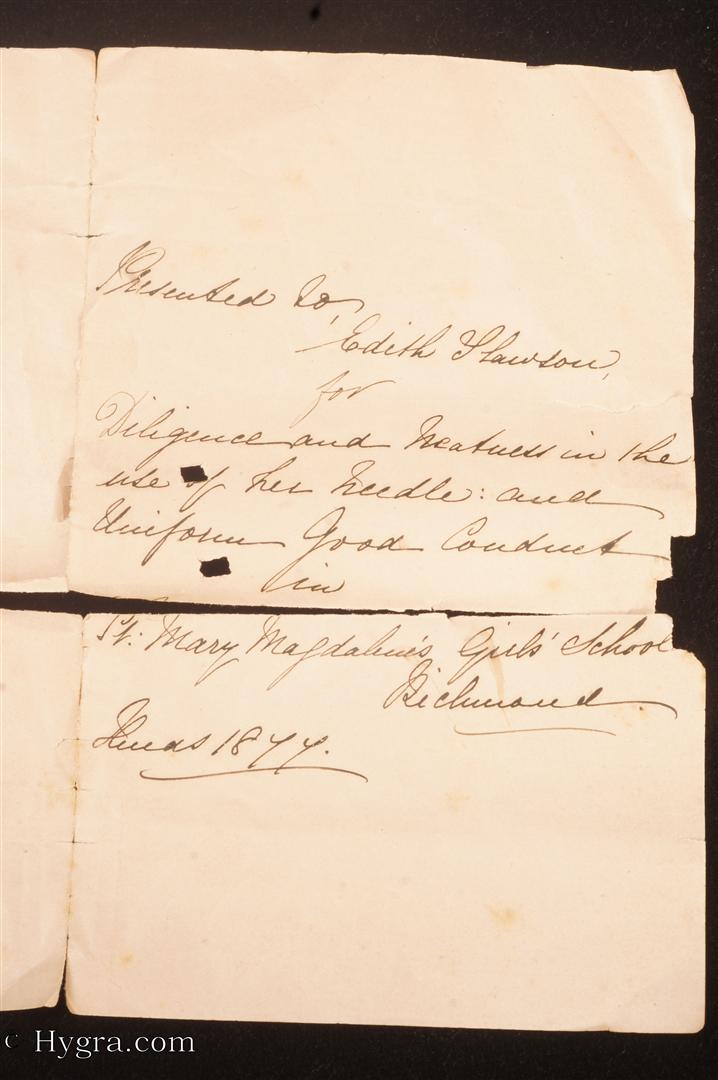 Presented to,
Edith Slawson,
for
Diligence and Neatness in the
use of her Needle: and
Uniform Good Conduct
in
St: Mary Magdalene's Girls' School
Richmond.
Xmas 1877.
© Hygra.com